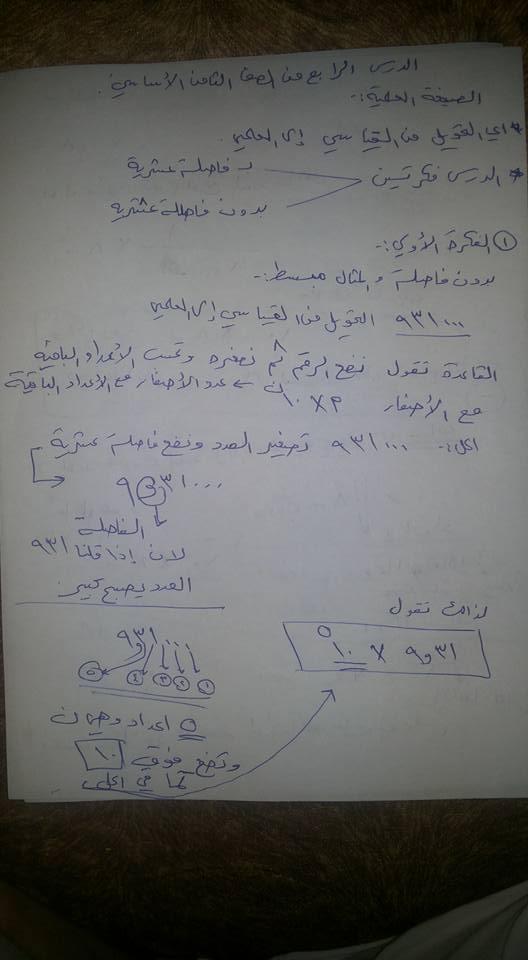 الدرس الرابع من الصف الثامن الأساسي.
الصيغة العلمية :-
* اي التحويل من القياسي إلى العلمي
* الدرس فكرتين
بـ فاصلة عشرية
بدون فاصلة عشرية
① الفكرة الأولي :-
بدون فاصلة والمثال مبسط :-
٩٣١٠٠٠ التحويل من القياسي إلى العلمي
القاعدة تقول نضع الرقم ثم نصغره ونحسب الأعداد الباقية
مع الأصفار م × ١٠ⁿ ← عدد الأصفار مع الأعداد الباقية
الحل :- ٩٣١٠٠٠ تصغير العدد ونضع فاصلة عشرية
٩و٣١٠٠٠
الفاصلة
لان إذا قلنا ٩٣١
العدد يصبح كبير
لذالك نقول
٩و٣١ × ١٠⁵
٩و٣١٠٠٠
⑤ ④ ③ ② ①
٥ اعداد وهي ن
ونضع فوق ١٠
كما في اعلى